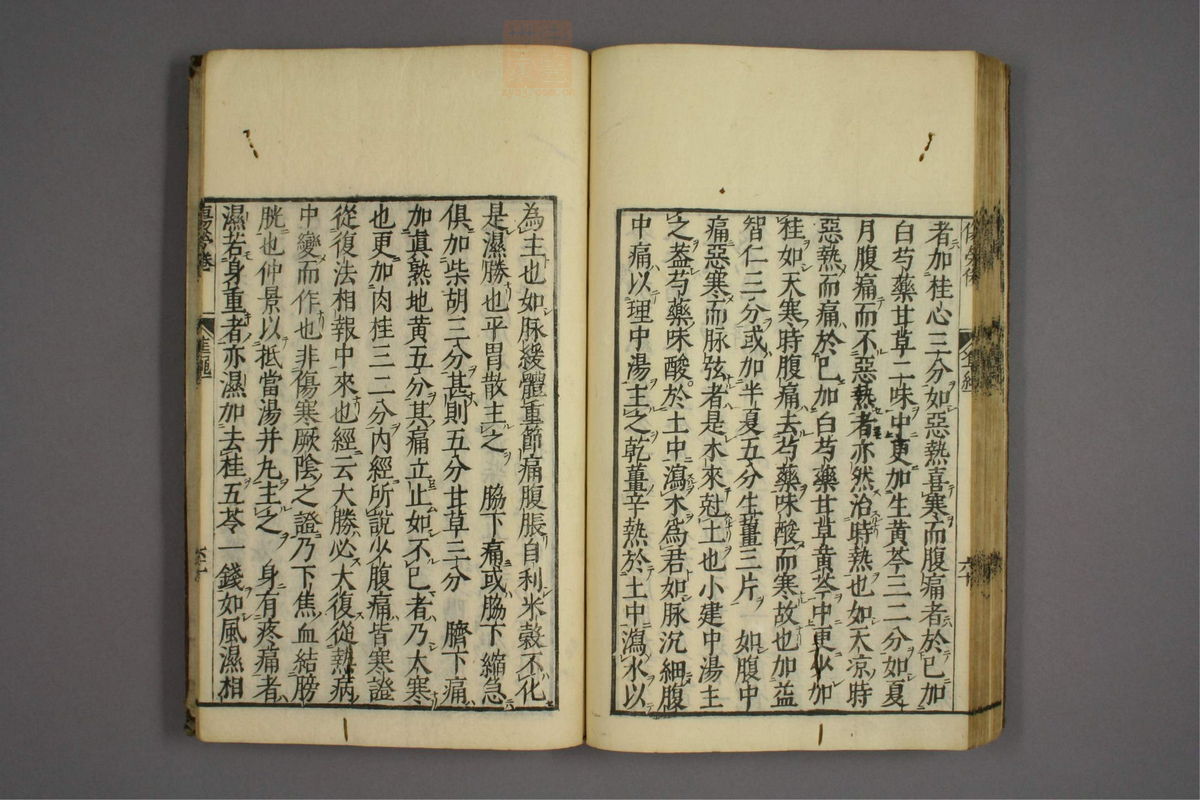 者加桂心三分如惡熱喜寒而腹痛者於已加
白芍藥甘草二味中更加生黃芩三二分如夏
月腹痛而不惡熱者亦然治時熱也如天凉時
惡熱而痛於已加白芍藥甘草黃芩中更少加
桂如天寒時腹痛去芍藥味酸而寒故也加益
智仁三分或加半夏五分生薑三片 如腹中
痛惡寒而脉弦者是木來尅土也小建中湯主
之葢芍藥味酸於土中瀉木為君如脉沉細腹
中痛以理中湯主之乾薑辛熱於土中瀉水以
為主也如脉緩體重節痛腹脹自利米穀不化
是濕勝也平胃散主之 脇下痛或脇下縮急
俱加柴胡三分甚則五分甘草三分 臍下痛
加真熟地黃五分其痛立止如不已者乃大寒
也更加肉桂三二分內經所說少腹痛皆寒證
從復法相報中來也經云大勝必大復從熱病
中變而作也非傷寒厥陰之證乃下焦血結膀
胱也仲景以抵當湯并丸主之 身有疼痛者
濕若身重者亦濕加去桂五苓一錢如風濕相